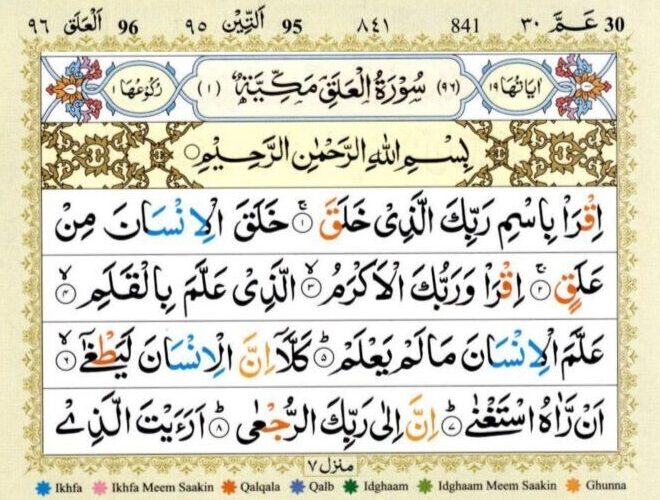 30 عَمَّ ٣٠ 841 ٨٤١ 95 اَلتِّيْن ٩٥ 96 اَلْعَلَق ٩٦
اٰيَاتُهَا ١٩ (٩٦) سُوْرَةُ الْعَلَقِ مَكِّيَّةٌ (١) رُكُوْعُهَا ١
بِسْمِ اللهِ الرَّحْمٰنِ الرَّحِيْمِ
اِقْرَاْ بِاسْمِ رَبِّكَ الَّذِىْ خَلَقَ ۚ ١ خَلَقَ الْاِنْسَانَ مِنْ
عَلَقٍ ۚ ٢ اِقْرَاْ وَرَبُّكَ الْاَكْرَمُ ۙ ٣ الَّذِىْ عَلَّمَ بِالْقَلَمِ ۙ ٤
عَلَّمَ الْاِنْسَانَ مَالَمْ يَعْلَمْ ؕ ٥ كَلَّاۤ اِنَّ الْاِنْسَانَ لَيَطْغٰٓى ۙ ٦
اَنْ رَّاٰهُ اسْتَغْنٰى ؕ ٧ اِنَّ اِلٰى رَبِّكَ الرُّجْعٰى ؕ ٨ اَرَءَيْتَ الَّذِىْ
منزل ٧
Ikhfa Ikhfa Meem Saakin Qalqala Qalb Idghaam Idghaam Meem Saakin Ghunna